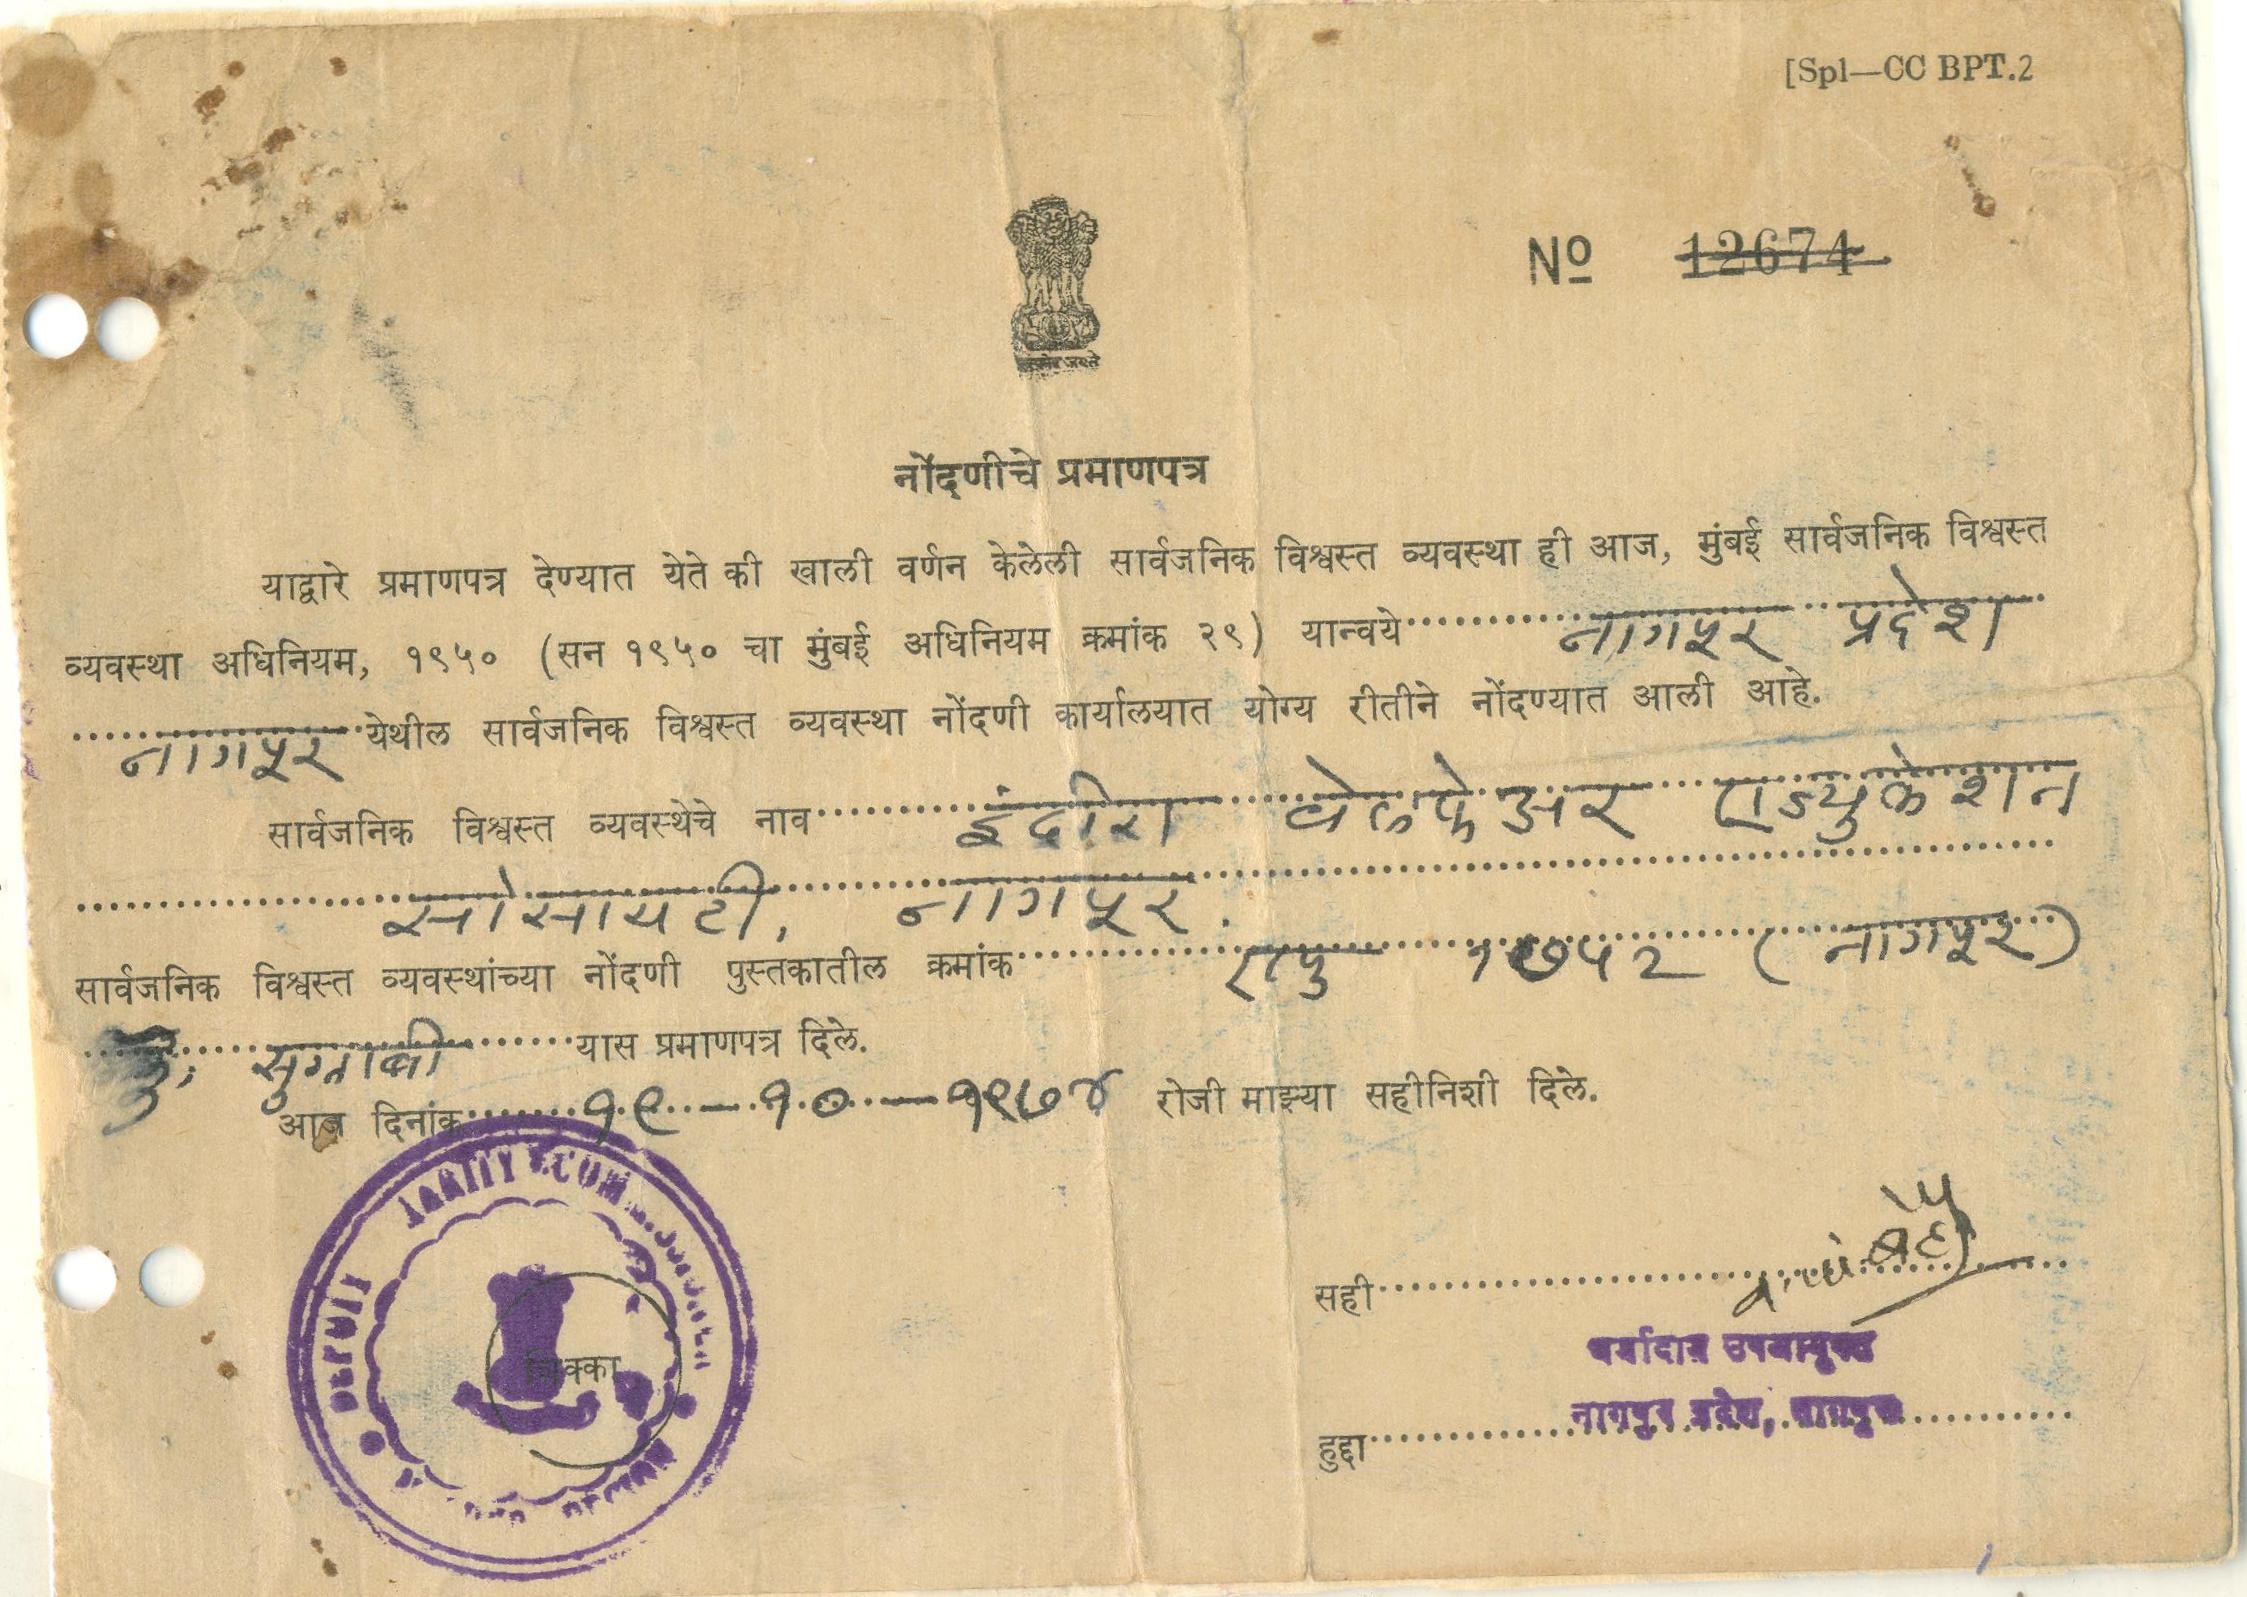 [Spl—CC BPT.2
No 12674
नोंदणीचे प्रमाणपत्र
याद्वारे प्रमाणपत्र देण्यात येते की खाली वर्णन केलेली सार्वजनिक विश्वस्त व्यवस्था ही आज, मुंबई सार्वजनिक विश्वस्त
व्यवस्था अधिनियम, १९५० (सन १९५० चा मुंबई अधिनियम क्रमांक २९) यान्वये नागपूर प्रदेश
नागपूर येथील सार्वजनिक विश्वस्त व्यवस्था नोंदणी कार्यालयात योग्य रीतीने नोंदण्यात आली आहे.
सार्वजनिक विश्वस्त व्यवस्थेचे नाव इंदीरा वेलफेअर एज्युकेशन
सोसायटी, नागपूर.
सार्वजनिक विश्वस्त व्यवस्थांच्या नोंदणी पुस्तकातील क्रमांक (नागपूर)
यास प्रमाणपत्र दिले.
आज दिनांक १९-१०-१९७४ रोजी माझ्या सहीनिशी दिले.
सही
शिक्का
नागपूर प्रदेश, नागपूर
हुद्दा